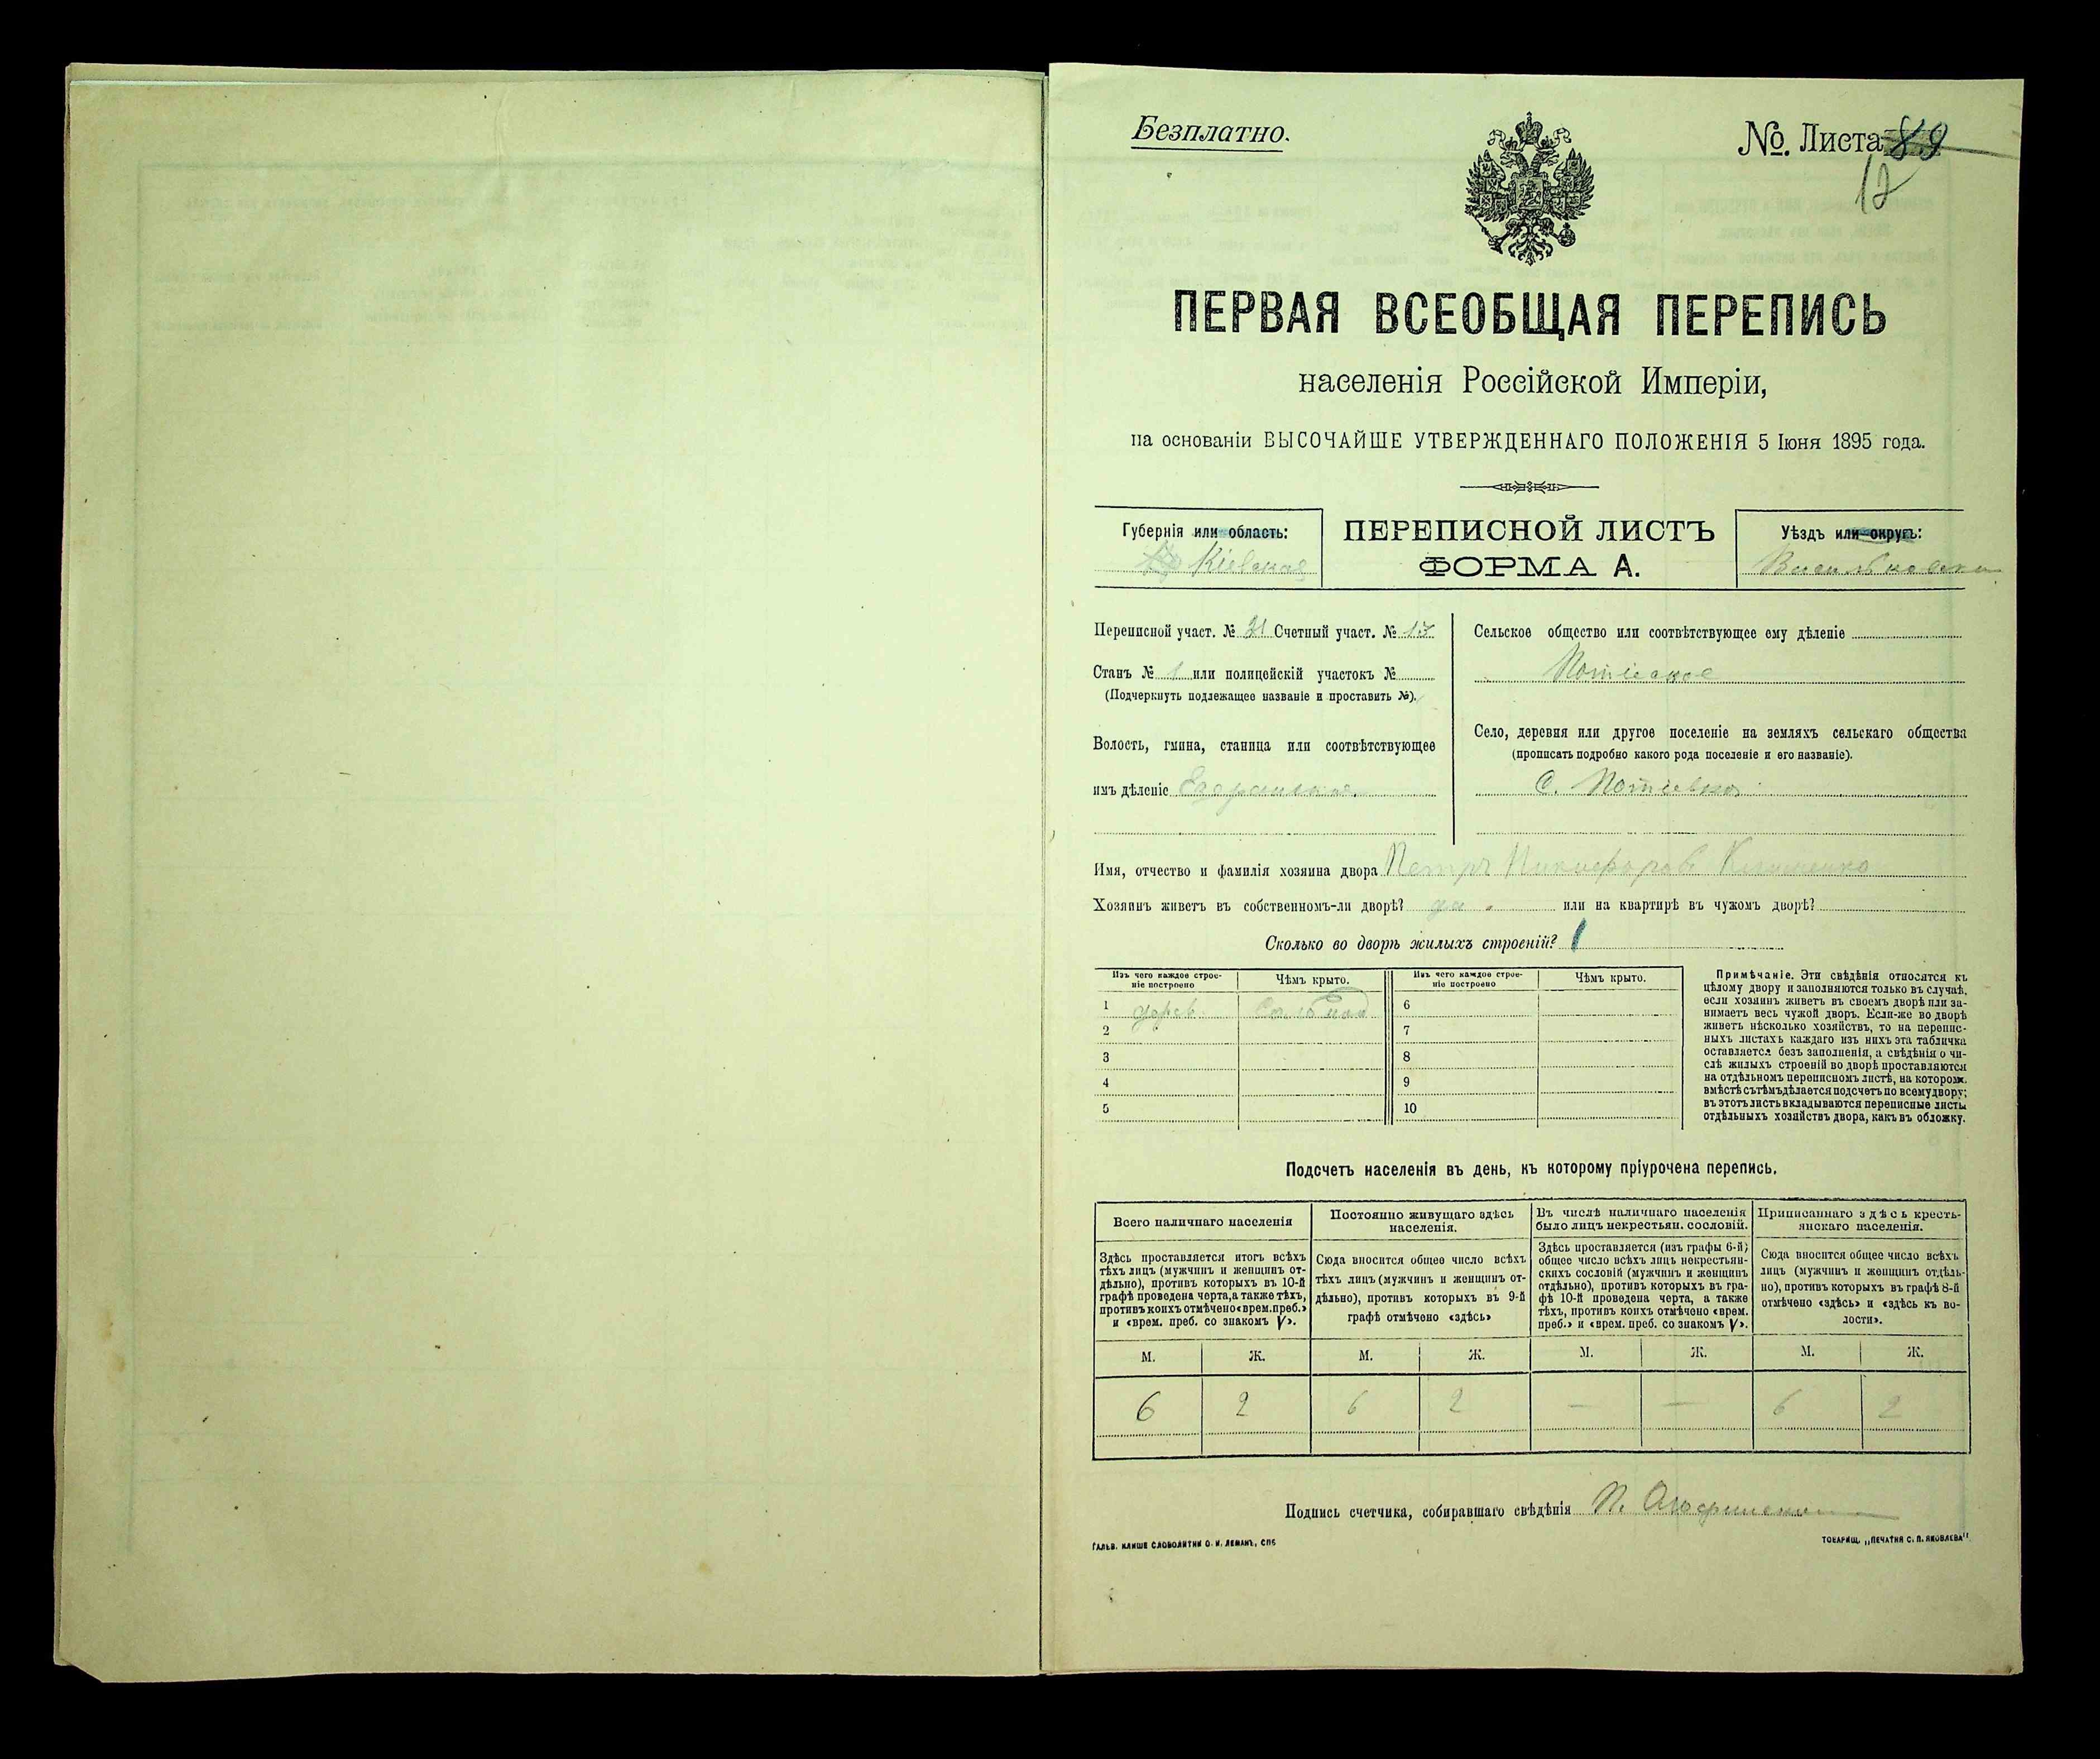 Безплатно.
№. Листа 89
12
ПЕРВАЯ ВСЕОБЩАЯ ПЕРЕПИСЬ
населенія Россійской Имперіи,
на основаніи ВЫСОЧАЙШЕ УТВЕРЖДЕННАГО ПОЛОЖЕНІЯ 5 Іюня 1895 года.
Губернія или область:
Кіевская
ПЕРЕПИСНОЙ ЛИСТЪ
ФОРМА А.
Уѣздъ или округъ:
Васильковскій
Переписной участ. № 21 Счетный участ. № 17
Станъ № 1 или полицейскій участокъ №
(Подчеркнуть подлежащее названіе и проставить №).
Волость, гмина, станица или соотвѣтствующее
имъ дѣленіе Езерянская
Сельское общество или соотвѣтствующее ему дѣленіе
Потіевское
Село, деревня или другое поселеніе на земляхъ сельскаго общества
(прописать подробно какого рода поселеніе и его названіе).
С. Потіевка
Имя, отчество и фамилія хозяина двора Петръ Никифоровъ Клименко
Хозяинъ живетъ въ собственномъ-ли дворѣ? да или на квартирѣ въ чужомъ дворѣ?
Сколько во дворѣ жилыхъ строеній? 1
Изъ чего каждое строе-
ніе построено
Чѣмъ крыто.
Изъ чего каждое строе-
ніе построено
Чѣмъ крыто.
1 дерев. Соломой 6
2 7
3 8
4 9
5 10
Примѣчаніе. Эти свѣдѣнія относятся къ
цѣлому двору и заполняются только въ случаѣ,
если хозяинъ живетъ въ своемъ дворѣ или за-
нимаетъ весь чужой дворъ. Если-же во дворѣ
живетъ нѣсколько хозяйствъ, то на перепис-
ныхъ листахъ каждаго изъ нихъ эта табличка
оставляется безъ заполненія, а свѣдѣнія о чи-
слѣ жилыхъ строеній во дворѣ проставляются
на отдѣльномъ переписномъ листѣ, на которомъ
вмѣстѣ съ тѣмъ дѣлается подсчетъ по всему двору;
въ этотъ листъ вкладываются переписные листы
отдѣльныхъ хозяйствъ двора, какъ въ обложку.
Подсчетъ населенія въ день, къ которому пріурочена перепись.
Всего наличнаго населенія
Здѣсь проставляется итогъ всѣхъ
тѣхъ лицъ (мужчинъ и женщинъ от-
дѣльно), противъ которыхъ въ 10-й
графѣ проведена черта, а также тѣхъ,
противъ коихъ отмѣчено «врем. преб.»
и «врем. преб. со знакомъ V».
Постоянно живущаго здѣсь
населенія.
Сюда вносится общее число всѣхъ
тѣхъ лицъ (мужчинъ и женщинъ от-
дѣльно), противъ которыхъ въ 9-й
графѣ отмѣчено «здѣсь»
Въ числѣ наличнаго населенія
было лицъ некрестьян. сословій.
Здѣсь проставляется (изъ графы 6-й)
общее число всѣхъ лицъ некрестьян-
скихъ сословій (мужчинъ и женщинъ
отдѣльно), противъ которыхъ въ гра-
фѣ 10-й проведена черта, а также
тѣхъ, противъ коихъ отмѣчено «врем.
преб.» и «врем. преб. со знакомъ V».
Приписаннаго здѣсь кресть-
янскаго населенія.
Сюда вносится общее число всѣхъ
лицъ (мужчинъ и женщинъ отдѣль-
но), противъ которыхъ въ графѣ 8-й
отмѣчено «здѣсь» и «здѣсь къ во-
лости».
М. Ж. М. Ж. М. Ж. М. Ж.
6 2 6 2 — — 6 2
Подпись счетчика, собиравшаго свѣдѣнія П.
ГАЛЬВ. КЛИШЕ СЛОВОЛИТНИ О. И. ЛЕМАНЪ, СПБ
ТОВАРИЩ. „ПЕЧАТНЯ С. П. ЯКОВЛЕВА"